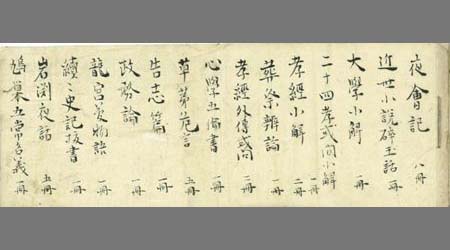 夜會記 八冊
近世小説碎玉話 冊
大學小解 一冊
二十四孝或問小解 一冊
孝經小解 二冊
葬祭辨論 一冊
孝經外傳或問 二冊
心學五倫書 一冊
草茅危言 五冊
告志篇 一冊
政務論 一冊
龍宮夢物語 一冊
續々史記抜書 一冊
岩渕夜話 五冊
鳩巣五常名義 一冊